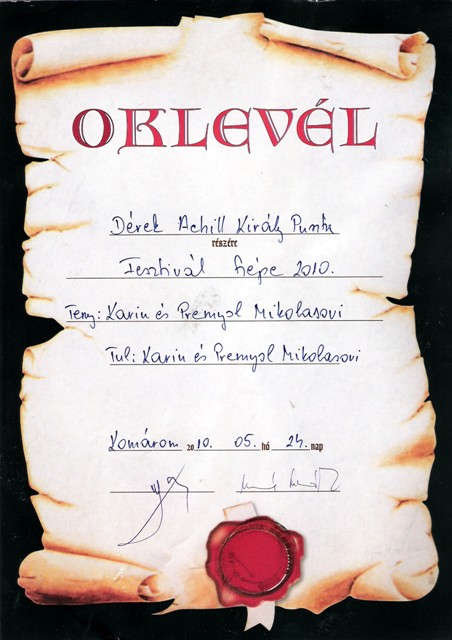 OKLEVÉL
Dérek Achill Király Puszta
részére
Fesztivál Népe 2010.
Teny: Karin és Premysl Mikolasovi
Tul: Karin és Premysl Mikolasovi
Komárom 2010. 05. hó 24. nap